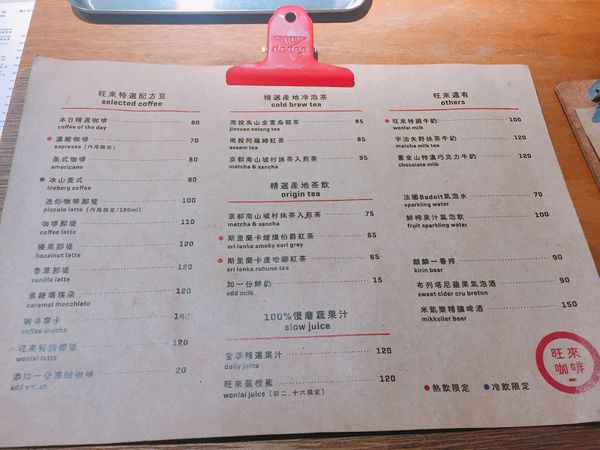 旺來特選配方豆
selected coffee
本日精選咖啡 80
coffee of the day
濃縮咖啡 70
espresso [內用限定]
美式咖啡 80
americano
冰山美式 80
iceberg coffee
迷你咖啡那堤 100
piccolo latte [內用限定/120ml]
咖啡那堤 110
coffee latte
榛果那堤 120
hazelnut latte
香草那堤 120
vanilla latte
焦糖瑪琪朵 120
caramel macchiato
咖啡摩卡 140
coffee mocha
旺來特調那堤 120
wonlai latte
添加一份濃縮咖啡 20
add
精選產地冷泡茶
cold brew tea
南投高山金萱烏龍茶 85
jinxuan oolong tea
南投阿薩姆紅茶 85
assam tea
京都南山城村抹茶入煎茶 95
matcha & sencha
精選產地茶飲
origin tea
京都南山城村抹茶入煎茶 75
matcha & sencha
斯里蘭卡煙燻伯爵紅茶 65
sri lanka smoky earl grey
斯里蘭卡盧哈娜紅茶 65
sri lanka ruhuna tea
加一份鮮奶 15
add milk
100%慢磨蔬果汁
slow juice
當季精選果汁 120
daily juice
旺來蘋橙蕉 120
wonlai juice [初二、十六限定]
旺來還有
others
旺來特調牛奶 100
wonlai milk
宇治矢野抹茶牛奶 120
matcha milk tea
舊金山特濃巧克力牛奶 120
chocolate milk
法國Badoit氣泡水 70
sparkling water
鮮榨果汁氣泡飲 100
fruit sparkling water
麒麟一番搾 90
kirin beer
布列塔尼蘋果氣泡酒 90
sweet cider cru breton
米凱樂精釀啤酒 150
mikkeller beer
熱飲限定 冷飲限定
旺來
咖啡